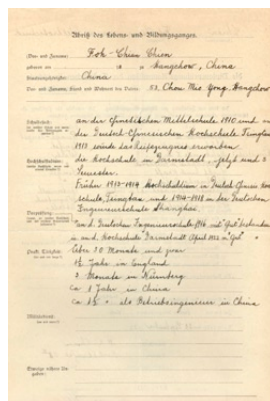 Abriß des Lebens- und Bildungsganges.
Vor- und Zuname: Fok-Chien Chien
geboren am " " Hangchow, China
Staatsangehörigkeit: China
52 Chou Mio Gong. Hangchow
Schulbesuch: an der Chinesischen Mittelschule 1910 und an
der Deutsch-Chinesischen Hochschule Tsingtau
1913 wurde das Reifezeugnis erworben
Hochschulstudium: die Hochschule in Darmstadt, jetzt und 3
Semester.
Früher 1912-1914 Hochschulstudium in Deutsch-Chines. Hoch
schule, Tsingtau und 1914-1918 in der Deutschen
Ingenieurschule Shanghai.
Vorprüfung: an d. Deutschen Ingenieurschule 1916 mit "Gut" bestanden
in an d. Hochschule Darmstadt April 1922 m. "Gut" "
Prakt. Tätigkeit: über 30 Monate und zwar
1½ Jahr in England
3 Monate in Nürnberg
ca 1 Jahr in China
ca 1½ " als Betriebsingenieur in China
Militärdienst: